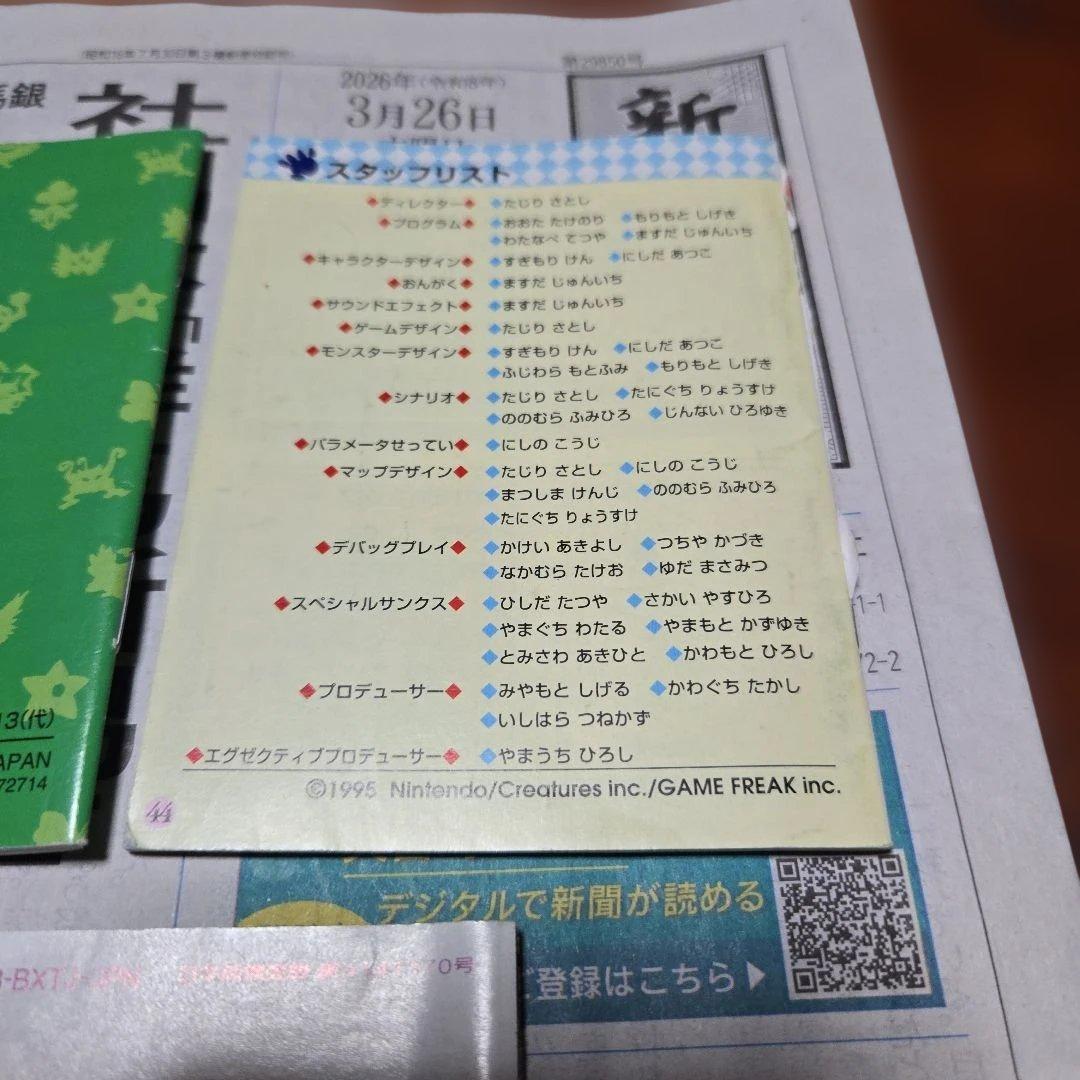 馬銀
社
2026年(令和8年)
3月26日
第29850号
新
スタッフリスト
ディレクター たじり さとし
プログラム おおた たけのり もりもと しげき
わたなべ てつや ますだ じゅんいち
キャラクターデザイン すぎもり けん にしだ あつこ
おんがく ますだ じゅんいち
サウンドエフェクト ますだ じゅんいち
ゲームデザイン たじり さとし
モンスターデザイン すぎもり けん にしだ あつこ
ふじわら もとふみ もりもと しげき
シナリオ たじり さとし たにぐち りょうすけ
ののむら ふみひろ じんない ひろゆき
パラメータせってい にしの こうじ
マップデザイン たじり さとし にしの こうじ
まつしま けんじ ののむら ふみひろ
たにぐち りょうすけ
デバッグプレイ かけい あきよし つちや かづき
なかむら たけお ゆだ まさみつ
スペシャルサンクス ひしだ たつや さかい やすひろ
やまぐち わたる やまもと かずゆき
とみさわ あきひと かわもと ひろし
プロデューサー みやもと しげる かわぐち たかし
いしはら つねかず
エグゼクティブプロデューサー やまうち ひろし
©1995 Nintendo/Creatures inc./GAME FREAK inc.
44
13(代)
JAPAN
72714
41-1
72-2
デジタルで新聞が読める
ご登録はこちら
0号